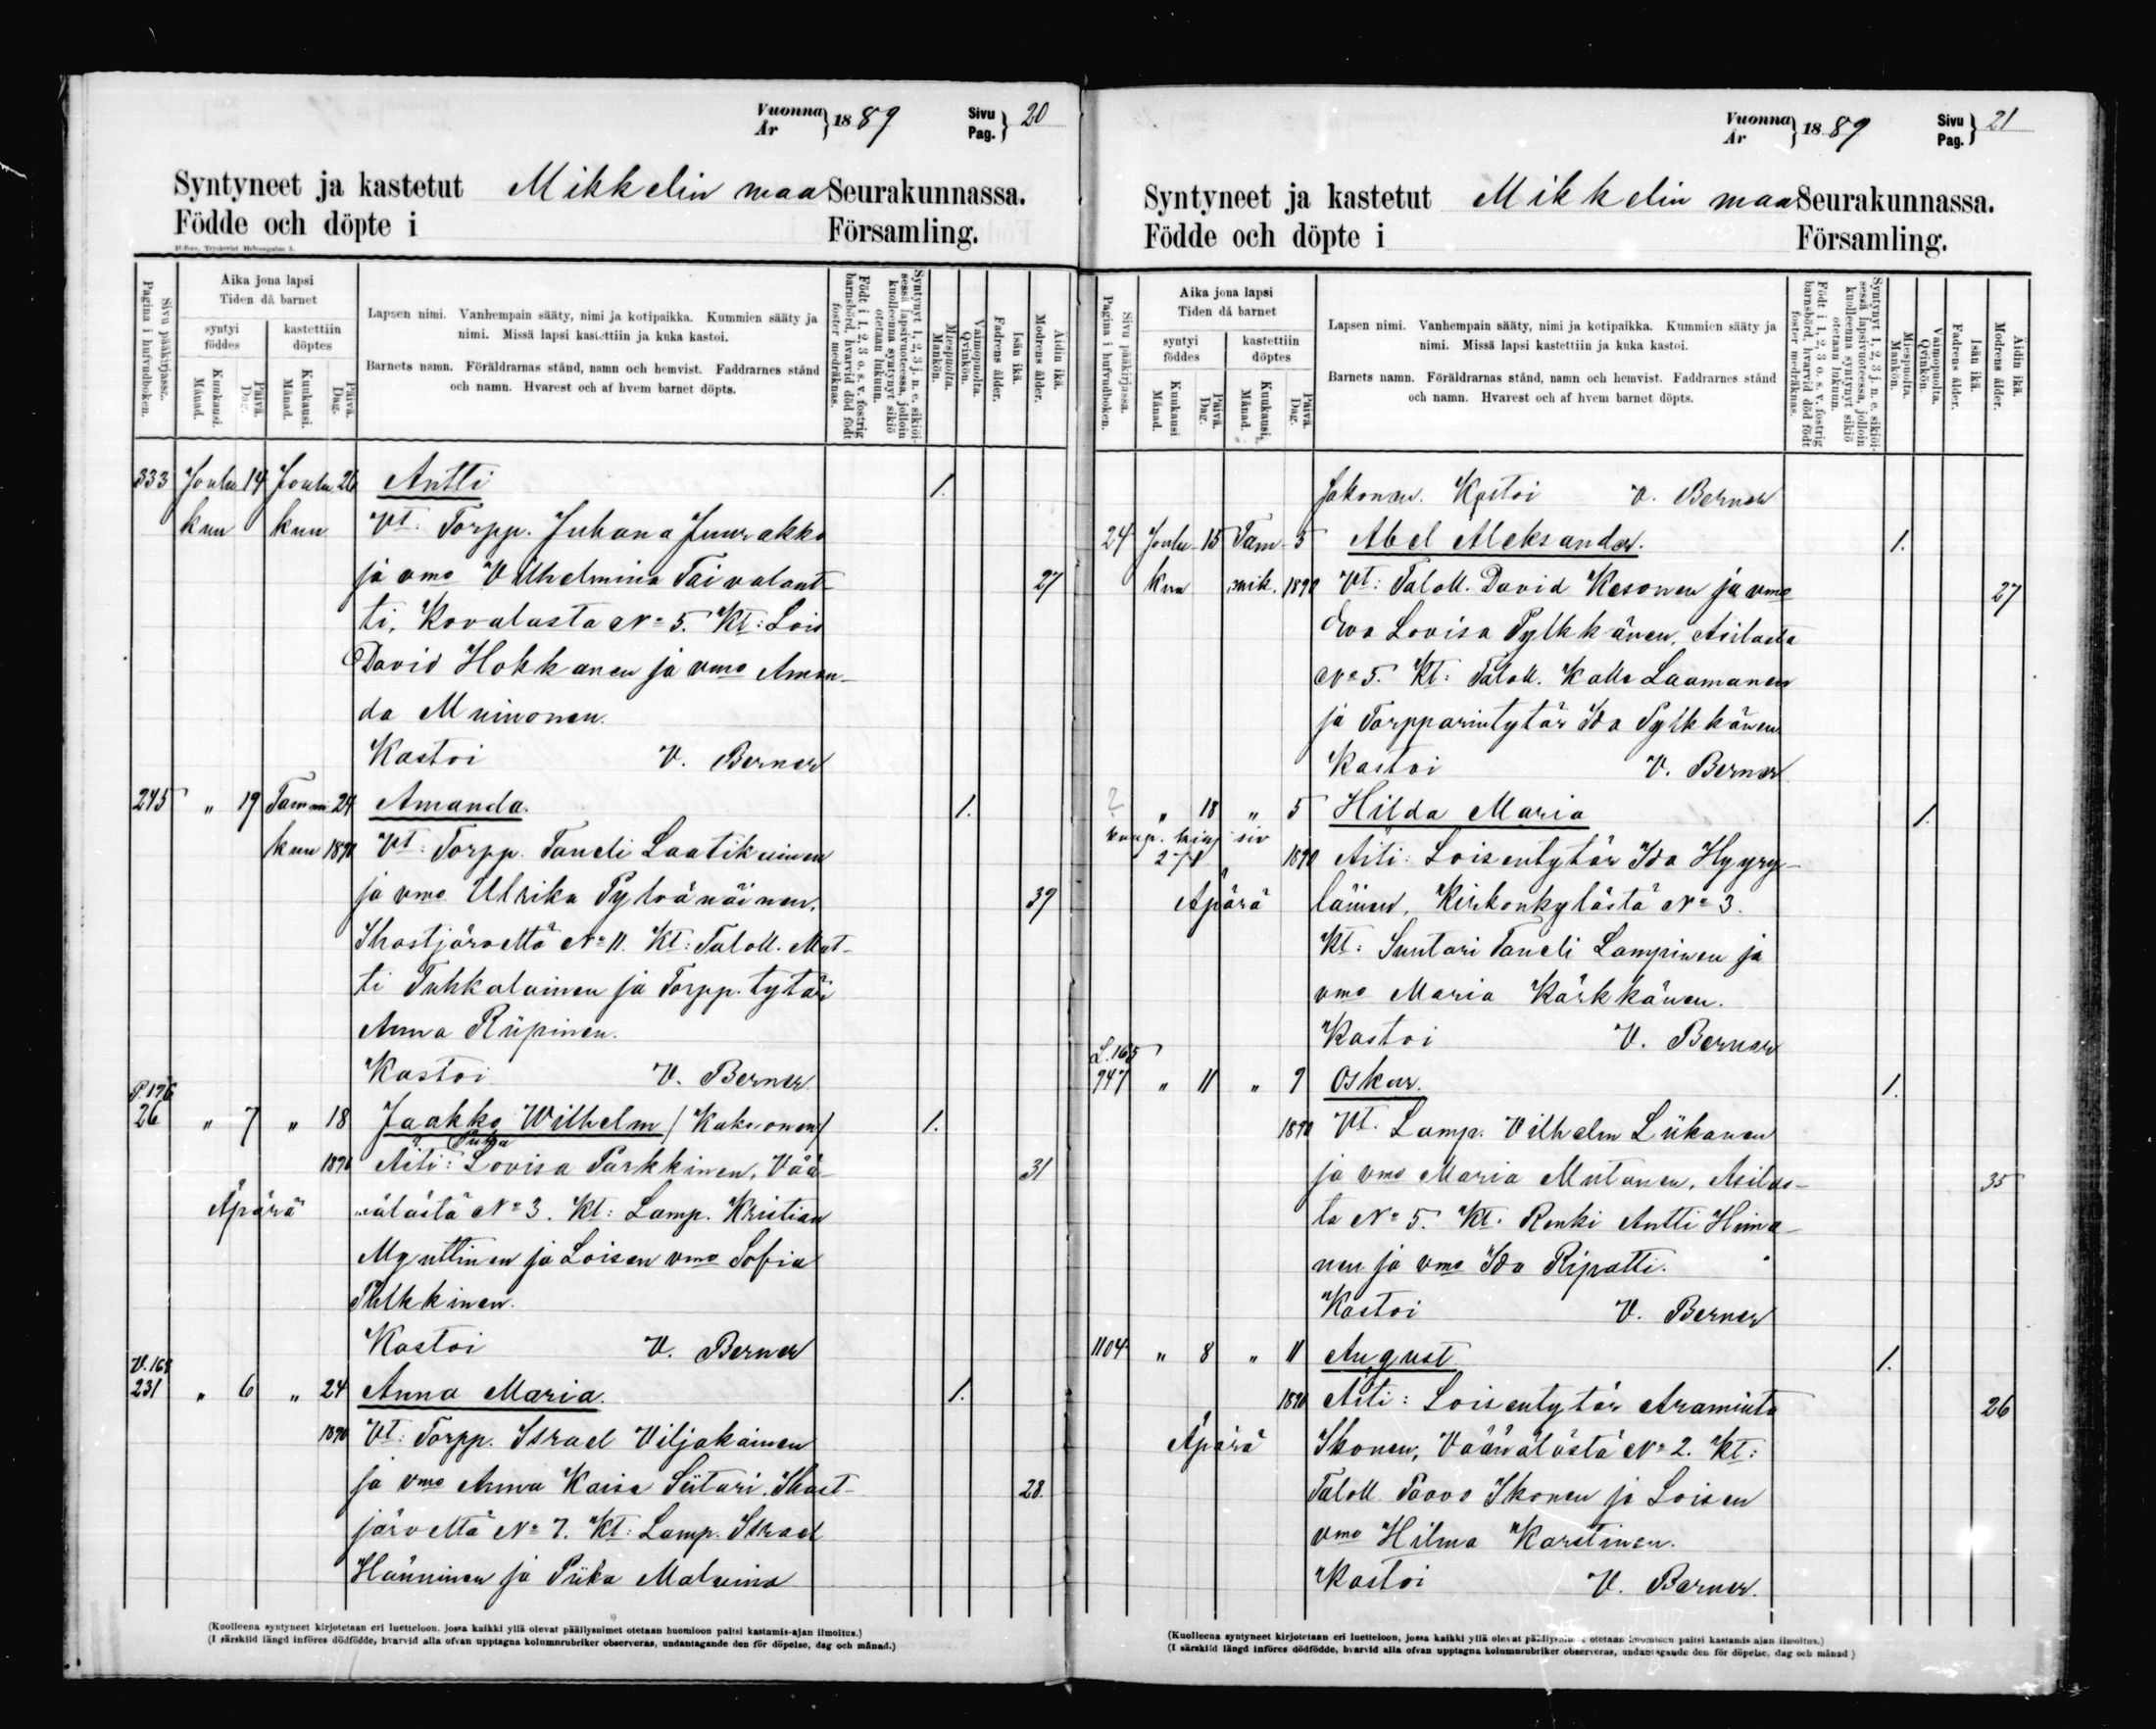 Vuonna
År } 1889 Sivu
Pag. } 20
Syntyneet ja kastetut Mikkelin maa Seurakunnassa.
Födde och döpte i Församling.
Sivu pääkirjassa.
Pagina i hufvudboken.
Aika jona lapsi
Tiden då barnet
syntyi
föddes
kastettiin
döptes
Kuukausi.
Månad.
Päivä.
Dag.
Kuukausi.
Månad.
Päivä.
Dag.
Lapsen nimi. Vanhempain sääty, nimi ja kotipaikka. Kummien sääty ja
nimi. Missä lapsi kastettiin ja kuka kastoi.
Barnets namn. Föräldrarnas stånd, namn och hemvist. Faddrarnes stånd
och namn. Hvarest och af hvem barnet döpts.
Syntynyt 1, 2, 3 j. n. e. sikiöi-
sessä lapsivuoteessa, jolloin
kuolleenna syntynyt sikiö
otetaan lukuun.
Född i 1, 2, 3 o. s. v. fostrig
barnsbörd, hvarvid död född
foster medräknas.
Miespuolta.
Mankön.
Vaimopuolta.
Qvinkön.
Isän ikä.
Fadrens ålder.
Äidin ikä.
Modrens ålder.
333 Joulu 14 Joulu 26 Antti 1.
kuu kuu Vt. Torpp. Juhana Juurakko
ja vmo Vilhelmina Taivalant- 27
ti, Kovalasta No 5. Kt: Lois
David Hokkanen ja vmo Aman-
da Muinonen.
Kastoi V. Berner
245 " 19 Tamm 24 Amanda. 1.
kuu 1890 Vt: Torpp. Taneli Laatikainen
ja vmo Ulrika Pylvänäinen, 39
Ihastjärveltä No 11. Kt: Taloll. Mat-
ti Tuhkalainen ja Torpp. tytär
Anna Riipinen.
Kastoi V. Berner
P. 176
26 " 7 " 18 Jaakko Wilhelm / Kaksonen / 1.
1890 Äiti: Lovisa Parkkinen, Vää- 31
Äpärä nälästä No 3. Kt: Lamp. Kristian
Mynttinen ja Loisen vmo Sofia
Pulkkinen.
Kastoi V. Berner
231 " 6 " 24 Anna Maria. 1.
1890 Vt: Torpp. Israel Viljakainen
ja vmo Anna Kaisa Siitari, Ihast- 28.
järveltä No 7. Kt: Lamp. Israel
Hänninen ja Piika Malviina
(Kuolleena syntyneet kirjotetaan eri luetteloon, jossa kaikki yllä olevat päällysnimet otetaan huomioon paitsi kastamis-ajan ilmoitus.)
(I särskild längd införes dödfödde, hvarvid alla ofvan upptagna kolumnrubriker observeras, undantagande den för döpelse, dag och månad.)
Vuonna
År } 1889 Sivu
Pag. } 21
Syntyneet ja kastetut Mikkelin maa Seurakunnassa.
Födde och döpte i Församling.
Sivu pääkirjassa.
Pagina i hufvudboken.
Aika jona lapsi
Tiden då barnet
syntyi
föddes
kastettiin
döptes
Kuukausi
Månad.
Päivä.
Dag.
Kuukausi.
Månad.
Päivä.
Dag.
Lapsen nimi. Vanhempain sääty, nimi ja kotipaikka. Kummien sääty ja
nimi. Missä lapsi kastettiin ja kuka kastoi.
Barnets namn. Föräldrarnas stånd, namn och hemvist. Faddrarnes stånd
och namn. Hvarest och af hvem barnet döpts.
Syntynyt 1, 2, 3 j. n. e. sikiöi-
sessä lapsivuoteessa, jolloin
kuolleenna syntynyt sikiö
otetaan lukuun.
Född i 1, 2, 3 o. s. v. fostrig
barnsbörd, hvarvid död född
foster medräknas.
Miespuolta.
Mankön.
Vaimopuolta.
Qvinkön.
Isän ikä.
Fadrens ålder.
Äidin ikä.
Modrens ålder.
Kastoi V. Berner
24 Joulu 15 Tam- 5 Abel Aleksander. 1.
kuu mik. 1890 Vt: Taloll. David Kesonen ja vmo 27
Eva Lovisa Pylkkänen, Asilasta
No 5. Kt: Taloll. Kalle Laamanen
ja Torpparintytär Ida Pylkkänen
Kastoi V. Berner
? " 18 " 5 Hilda Maria 1.
271 1890 Äiti: Loisentytär Ida Hyyry-
Äpärä läinen, Kirkonkylästä No 3.
Kt: Suutari Taneli Lampinen ja
vmo Maria Kärkkänen.
Kastoi V. Berner
L. 165
947 " 11 " 9 Oskar. 1.
1890 Vt. Lamp. Vilhelm Liikanen
ja vmo Maria Mutanen, Asilas- 35
ta No 5. Kt. Renki Antti Hiima-
nen ja vmo Ida Ripatti.
Kastoi V. Berner
1104 " 8 " 11 August 1.
1890 Äiti: Loisentytär Araminta 26
Äpärä Ikonen, Väänälästä No 2. Kt:
Taloll. Paavo Ikonen ja Loisen
vmo Hilma Karstinen.
Kastoi V. Berner.
(Kuolleena syntyneet kirjotetaan eri luetteloon, jossa kaikki yllä olevat otetaan huomioon paitsi kastamis ajan ilmoitus.)
(I särskild längd införes dödfödde, hvarvid alla ofvan upptagna kolumnrubriker observeras, undantagande den för döpelse, dag och månad)